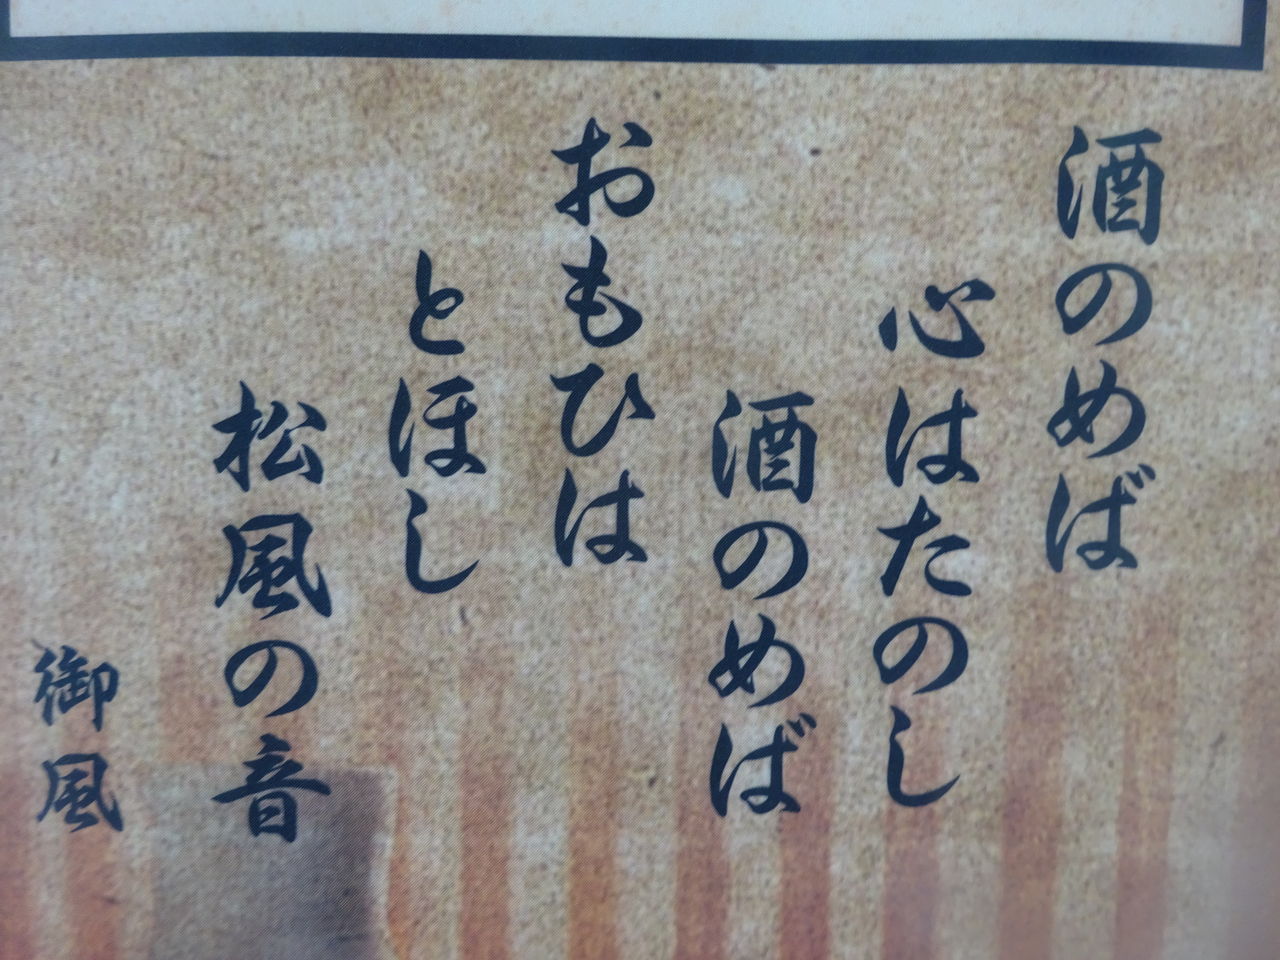 酒のめば
心はたのし
酒のめば
おもひは
とほし
松風の音
御風